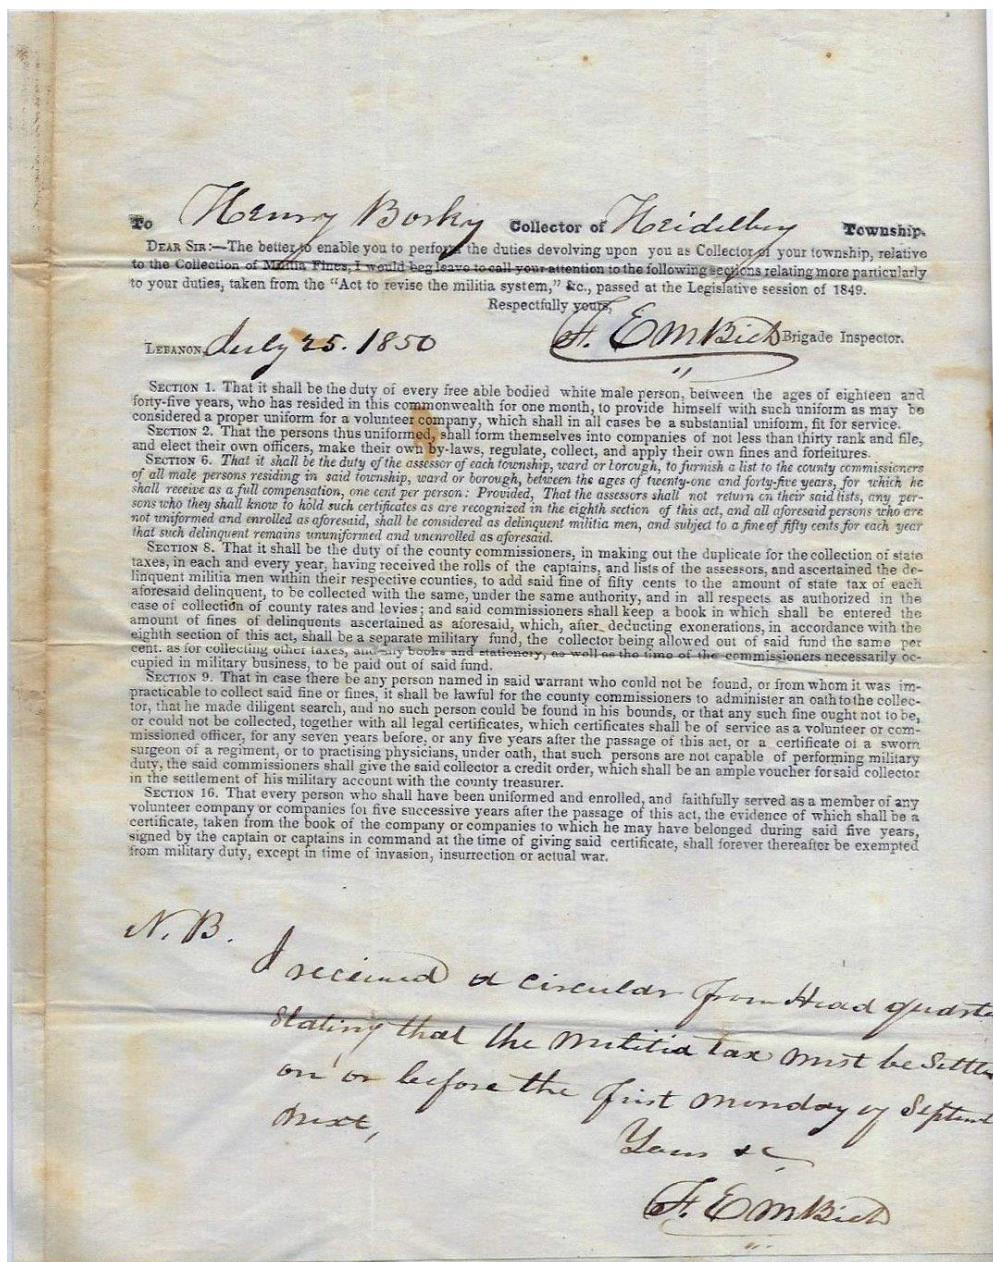 To Henry Borky Collector of Heidelberg Township.
DEAR SIR:—The better to enable you to perform the duties devolving upon you as Collector of your township, relative
to the Collection of Militia Fines, I would beg leave to call your attention to the following sections relating more particularly
to your duties, taken from the "Act to revise the militia system," &c., passed at the Legislative session of 1849.
Respectfully yours,
LEBANON, July 25. 1850 F. Embich Brigade Inspector.
SECTION 1. That it shall be the duty of every free able bodied white male person, between the ages of eighteen and
forty-five years, who has resided in this commonwealth for one month, to provide himself with such uniform as may be
considered a proper uniform for a volunteer company, which shall in all cases be a substantial uniform, fit for service.
SECTION 2. That the persons thus uniformed, shall form themselves into companies of not less than thirty rank and file,
and elect their own officers, make their own by-laws, regulate, collect, and apply their own fines and forfeitures.
SECTION 6. That it shall be the duty of the assessor of each township, ward or borough, to furnish a list to the county commissioners
of all male persons residing in said township, ward or borough, between the ages of twenty-one and forty-five years, for which he
shall receive as a full compensation, one cent per person: Provided, That the assessors shall not return on their said lists, any per-
sons who they shall know to hold such certificates as are recognized in the eighth section of this act, and all aforesaid persons who are
not uniformed and enrolled as aforesaid, shall be considered as delinquent militia men, and subject to a fine of fifty cents for each year
that such delinquent remains ununiformed and unenrolled as aforesaid.
SECTION 8. That it shall be the duty of the county commissioners, in making out the duplicate for the collection of state
taxes, in each and every year, having received the rolls of the captains, and lists of the assessors, and ascertained the de-
linquent militia men within their respective counties, to add said fine of fifty cents to the amount of state tax of each
aforesaid delinquent, to be collected with the same, under the same authority, and in all respects as authorized in the
case of collection of county rates and levies; and said commissioners shall keep a book in which shall be entered the
amount of fines of delinquents ascertained as aforesaid, which, after deducting exonerations, in accordance with the
eighth section of this act, shall be a separate military fund, the collector being allowed out of said fund the same per
cent. as for collecting other taxes, and any books and stationery, as well as the time of the commissioners necessarily oc-
cupied in military business, to be paid out of said fund.
SECTION 9. That in case there be any person named in said warrant who could not be found, or from whom it was im-
practicable to collect said fine or fines, it shall be lawful for the county commissioners to administer an oath to the collec-
tor, that he made diligent search, and no such person could be found in his bounds, or that any such fine ought not to be,
or could not be collected, together with all legal certificates, which certificates shall be of service as a volunteer or com-
missioned officer, for any seven years before, or any five years after the passage of this act, or a certificate of a sworn
surgeon of a regiment, or to practising physicians, under oath, that such persons are not capable of performing military
duty, the said commissioners shall give the said collector a credit order, which shall be an ample voucher for said collector
in the settlement of his military account with the county treasurer.
SECTION 16. That every person who shall have been uniformed and enrolled, and faithfully served as a member of any
volunteer company or companies for five successive years after the passage of this act, the evidence of which shall be a
certificate, taken from the book of the company or companies to which he may have belonged during said five years,
signed by the captain or captains in command at the time of giving said certificate, shall forever thereafter be exempted
from military duty, except in time of invasion, insurrection or actual war.
N.B.
I received a circular from Head quart
Stating that the militia tax must be Settle
on or before the first monday of Septem
next,
Yours &c
F. Embich